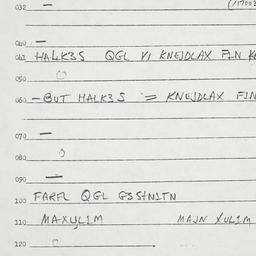 032 —
040 —
041 HALK3S QGL VI KNEJDLAX FIN
050 0
060 — BUT HALK3S = KNEJDLAX FIN
070 —
080 0
090 —
100 FARFL QGL G3StN1TN
110 MAXUL1M MAJN XUL1M
120 0